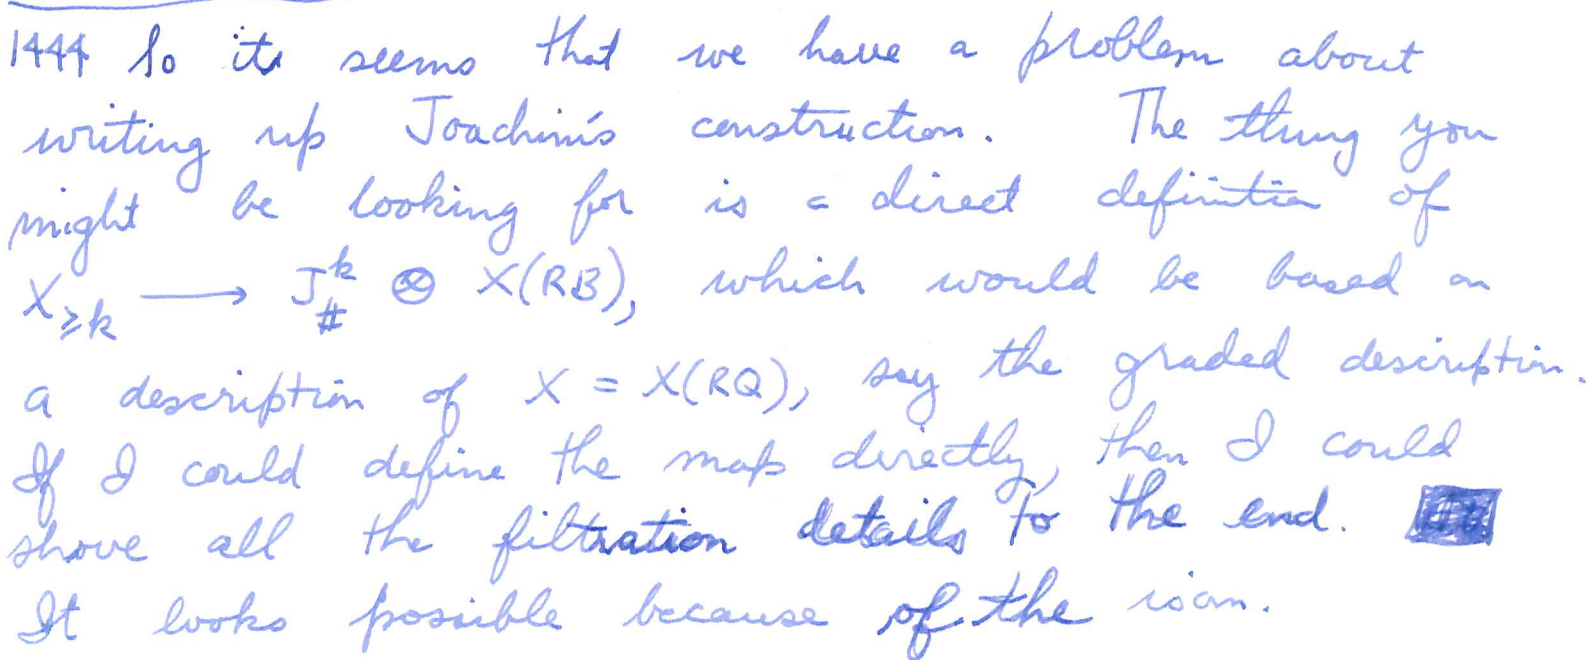 1444 So its seems that we have a problem about
writing up Joachim's construction. The thing you
might be looking for is a direct definition of
X_{≥k} ⟶ J^k_# ⊗ X(RB), which would be based on
a description of X = X(RQ), say the graded description.
If I could define the map directly, then I could
shove all the filtration details to the end.
It looks possible because of the isom.